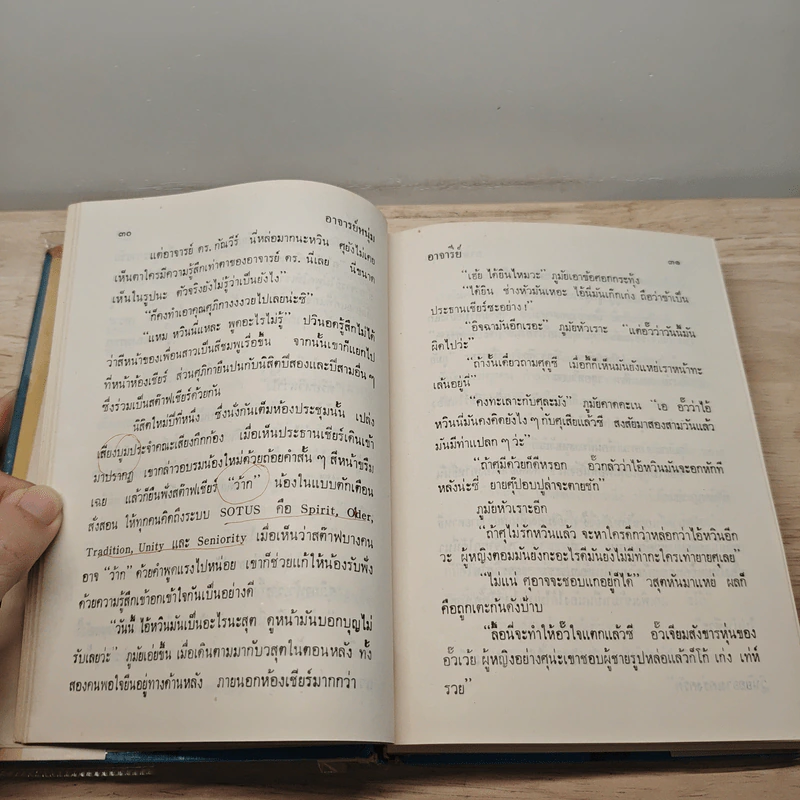 ๓๐
อาจารย์หนุ่ม
แต่อาจารย์ ดร. กัณวีร์ นี่หล่อมากนะหวิน ศุยังไม่เคย
เห็นตาใครมีความรู้สึกเท่าตาของอาจารย์ ดร. นี่เลย นี่ขนาด
เห็นในรูปนะ ตัวจริงยังไม่รู้ว่าเป็นยังไง”
“ก็คงทำเอาคุณศุภิกางงงวยไปเลยน่ะซิ”
“แหม หวินนี่แหละ พูดอะไรไม่รู้” ปวินอดรู้สึกไม่ได้
ว่าสีหน้าของเพื่อนสาวเป็นสีชมพูเรื่อขึ้น จากนั้นเขาก็แยกไป
ที่หน้าห้องเชียร์ ส่วนศุภิกายืนปนกับนิสิตปีสองและปีสามอื่นๆ
ซึ่งร่วมเป็นสต๊าฟเชียร์ด้วยกัน
นิสิตใหม่ปีที่หนึ่ง ซึ่งนั่งกันเต็มห้องประชุมนั้น เปล่ง
เสียงบูมประจำคณะเสียงกึกก้อง เมื่อเห็นประธานเชียร์เดินเข้า
มาปรากฏ เขากล่าวอบรมน้องใหม่ด้วยถ้อยคำสั้น ๆ สีหน้าขรึม
เฉย แล้วก็ยืนฟังสต๊าฟเชียร์ “ว้าก” น้องในแบบตักเตือน
สั่งสอน ให้ทุกคนคิดถึงระบบ SOTUS คือ Spirit, Older,
Tradition, Unity และ Seniority เมื่อเห็นว่าสต๊าฟบางคน
อาจ “ว้าก” ด้วยคำพูดแรงไปหน่อย เขาก็ช่วยแก้ให้น้องรับฟัง
ด้วยความรู้สึกเข้าอกเข้าใจกันเป็นอย่างดี
“วันนี้ ไอ้หวินมันเป็นอะไรนะสุต ดูหน้ามันบอกบุญไม่
รับเลยว่ะ” ภูมัยเอ่ยขึ้น เมื่อเดินตามมากับวสุตในตอนหลัง ทั้ง
สองคนพอใจยืนอยู่ทางด้านหลัง ภายนอกห้องเชียร์มากกว่า
อาจารีย์
๓๑
“เฮ้ย ได้ยินไหมวะ” ภูมัยเอาข้อศอกกระทุ้ง
“ได้ยิน ช่างหัวมันเหอะ ไอ้นี่มันเก๊กเก่ง ถือว่าข้าเป็น
ประธานเชียร์ซะอย่าง !”
“อิจฉามันอีกเรอะ” ภูมัยหัวเราะ “แต่อั๊วว่าวันนี้มัน
ผิดไปว่ะ”
“ถ้างั้นเดี๋ยวถามศุดูซี เมื่อกี้ก็เห็นมันยังแหย่เราหน้าทะ
เล้นอยู่นี่”
“คงทะเลาะกับศุละมัง” ภูมัยคาดคะเน “เอ อั๊วว่าไอ้
หวินนี่มันคงคิดยังไง ๆ กับศุเสียแล้วซี สงสัยมาสองสามวันแล้ว
มันมีท่าแปลก ๆ ว่ะ”
“ถ้าศุมีด้วยก็ดีหรอก อั๊วกลัวว่าไอ้หวินมันจะอกหักที
หลังน่ะซี่ ยายศุ๊ป๊อบปูล่าจะตายชัก”
ภูมัยหัวเราะอีก
“ถ้าศุไม่รักหวินแล้ว จะหาใครดีกว่าหล่อกว่าไอ้หวินอีก
วะ ผู้หญิงตอมมันยังกะอะไรดีมันยังไม่มีท่ากะใครเท่ายายศุเลย”
“ไม่แน่ ศุอาจจะชอบแกอยู่ก็ได้” วสุตหันมาแหย่ ผลก็
คือถูกเตะก้นดังป้าบ
“ลื้อนี่จะทำให้อั๊วใจแตกแล้วซี อั๊วเจียมสังขารหุ่นของ
อั๊วเว้ย ผู้หญิงอย่างศุน่ะเขาชอบผู้ชายรูปหล่อแล้วก็โก้ เก่ง เท่ห์
รวย”